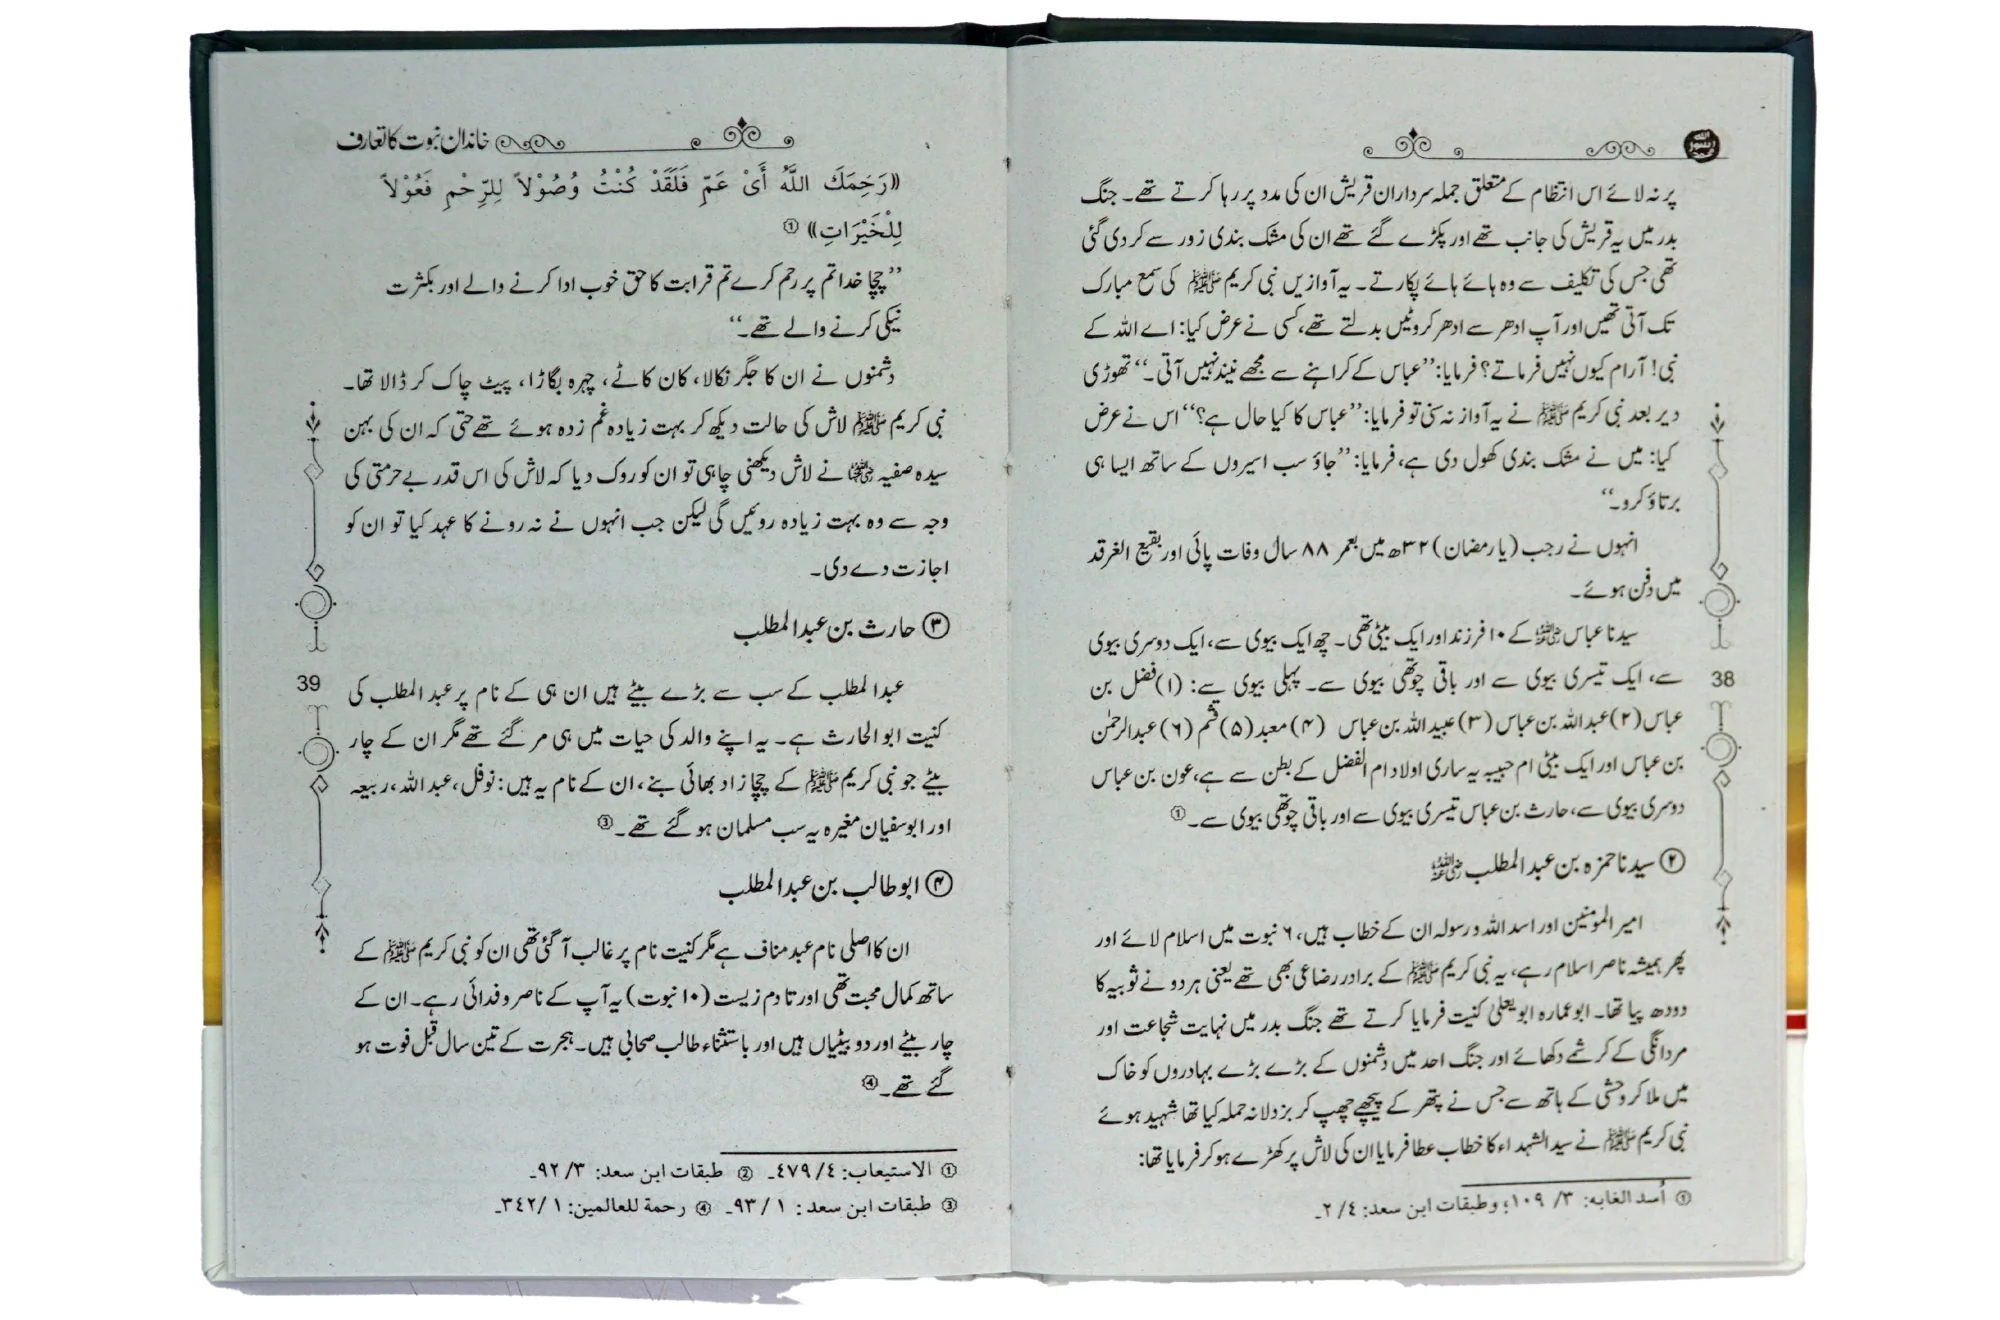 پر نہ لائے اس انتظام کے متعلق جملہ سرداران قریش ان کی مدد پر رہا کرتے تھے۔ جنگ
بدر میں یہ قریش کی جانب تھے اور پکڑے گئے تھے ان کی مشک بندی زور سے کر دی گئی
تھی جس کی تکلیف سے وہ ہائے ہائے پکارتے۔ یہ آوازیں نبی کریم ﷺ کی سمع مبارک
تک آتی تھیں اور آپ ادھر سے ادھر کروٹیں بدلتے تھے، کسی نے عرض کیا: اے اللہ کے
نبی! آرام کیوں نہیں فرماتے؟ فرمایا: ’’عباس کے کراہنے سے مجھے نیند نہیں آتی۔‘‘ تھوڑی
دیر بعد نبی کریم ﷺ نے یہ آواز نہ سنی تو فرمایا: ’’عباس کا کیا حال ہے؟‘‘ اس نے عرض
کیا: میں نے مشک بندی کھول دی ہے، فرمایا: ’’جاؤ سب اسیروں کے ساتھ ایسا ہی
برتاؤ کرو۔‘‘
انہوں نے رجب (یا رمضان) ۳۲ھ میں بعمر ۸۸ سال وفات پائی اور بقیع الغرقد
میں دفن ہوئے۔
سیدنا عباس رضی اللہ عنہ کے ۱۰ فرزند اور ایک بیٹی تھی۔ چھ ایک بیوی سے، ایک دوسری بیوی
سے، ایک تیسری بیوی سے اور باقی چوتھی بیوی سے۔ پہلی بیوی سے: (۱) فضل بن
عباس (۲) عبداللہ بن عباس (۳) عبیداللہ بن عباس (۴) معبد (۵) قثم (۶) عبدالرحمٰن
بن عباس اور ایک بیٹی ام حبیبہ یہ ساری اولاد ام الفضل کے بطن سے ہے، عون بن عباس
دوسری بیوی سے، حارث بن عباس تیسری بیوی سے اور باقی چوتھی بیوی سے۔ ①
② سیدنا حمزہ بن عبدالمطلب رضی اللہ عنہ
امیر المومنین اور اسد اللہ ورسولہ ان کے خطاب ہیں، ۶ نبوت میں اسلام لائے اور
پھر ہمیشہ ناصر اسلام رہے، یہ نبی کریم ﷺ کے برادر رضاعی بھی تھے یعنی ہر دو نے ثوبیہ کا
دودھ پیا تھا۔ ابوعمارہ ابویعلیٰ کنیت فرمایا کرتے تھے جنگ بدر میں نہایت شجاعت اور
مردانگی کے کرشمے دکھائے اور جنگ احد میں دشمنوں کے بڑے بڑے بہادروں کو خاک
میں ملا کر وحشی کے ہاتھ سے جس نے پتھر کے پیچھے چھپ کر بزدلانہ حملہ کیا تھا شہید ہوئے
نبی کریم ﷺ نے سید الشہداء کا خطاب عطا فرمایا ان کی لاش پر کھڑے ہو کر فرمایا تھا:
① اُسد الغابه: ۳/ ۱۰۹؛ وطبقات ابن سعد: ۴/ ۲۔
38
خاندان نبوت کا تعارف
((رَحِمَكَ اللّٰهُ أَىْ عَمِّ فَلَقَدْ كُنْتُ وُصُوْلاً لِلرِّحْمِ فَعُوْلاً
لِلْخَيْرَاتِ)) ①
’’چچا خدا تم پر رحم کرے تم قرابت کا حق خوب ادا کرنے والے اور بکثرت
نیکی کرنے والے تھے۔‘‘
دشمنوں نے ان کا جگر نکالا، کان کاٹے، چہرہ بگاڑا، پیٹ چاک کر ڈالا تھا۔
نبی کریم ﷺ لاش کی حالت دیکھ کر بہت زیادہ غم زدہ ہوئے تھے حتی کہ ان کی بہن
سیدہ صفیہ رضی اللہ عنہا نے لاش دیکھنی چاہی تو ان کو روک دیا کہ لاش کی اس قدر بے حرمتی کی
وجہ سے وہ بہت زیادہ روئیں گی لیکن جب انہوں نے نہ رونے کا عہد کیا تو ان کو
اجازت دے دی۔
③ حارث بن عبدالمطلب
عبدالمطلب کے سب سے بڑے بیٹے ہیں ان ہی کے نام پر عبدالمطلب کی
کنیت ابوالحارث ہے۔ یہ اپنے والد کی حیات میں ہی مر گئے تھے مگر ان کے چار
بیٹے جو نبی کریم ﷺ کے چچا زاد بھائی بنے، ان کے نام یہ ہیں: نوفل، عبداللہ، ربیعہ
اور ابوسفیان مغیرہ یہ سب مسلمان ہو گئے تھے۔ ③
④ ابوطالب بن عبدالمطلب
ان کا اصلی نام عبد مناف ہے مگر کنیت نام پر غالب آ گئی تھی ان کو نبی کریم ﷺ کے
ساتھ کمال محبت تھی اور تا دم زیست (۱۰ نبوت) یہ آپ کے ناصر و فدائی رہے۔ ان کے
چار بیٹے اور دو بیٹیاں ہیں اور باستثناء طالب صحابی ہیں۔ ہجرت کے تین سال قبل فوت ہو
گئے تھے۔ ④
① الاستیعاب: ۴/ ۴۷۹۔ ② طبقات ابن سعد: ۳/ ۹۲۔
③ طبقات ابن سعد: ۱ / ۹۳۔ ④ رحمة للعالمین: ۱ /۳۴۲۔
39